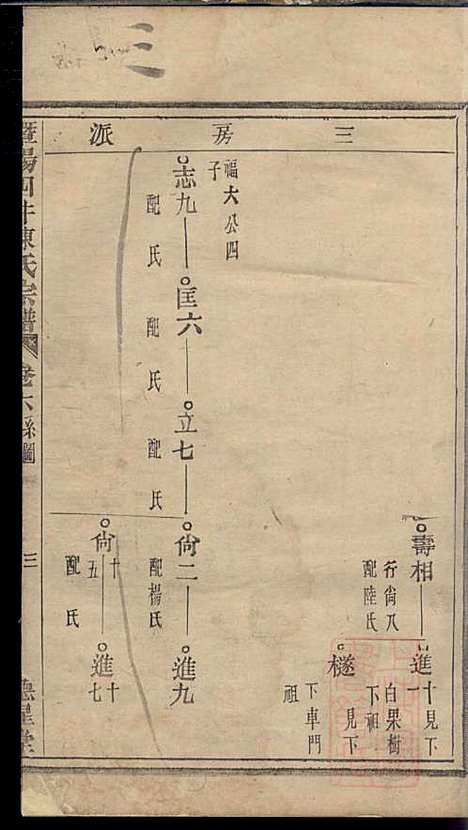 三
三房派
壽相
行尙八
配陸氏
進十一
見下
白果樹
下祖
檖
見下
下車門
祖
福大公四
子
志九
配氏
匡六
配氏
立七
配氏
尙二
配楊氏
進九
尙十五
配氏
進十七
暨陽 陳氏宗譜
卷六系圖
三